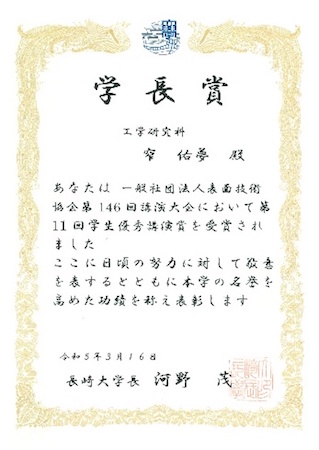 学長賞
工学研究科
窄 佑夢 殿
あなたは 一般社団法人表面技術
協会第146回講演大会において第
11回学生優秀講演賞を受賞され
ました
ここに日頃の努力に対して敬意
を表するとともに本学の名誉を
高めた功績を称え表彰します
令和5年3月16日
長崎大学長 河野 茂